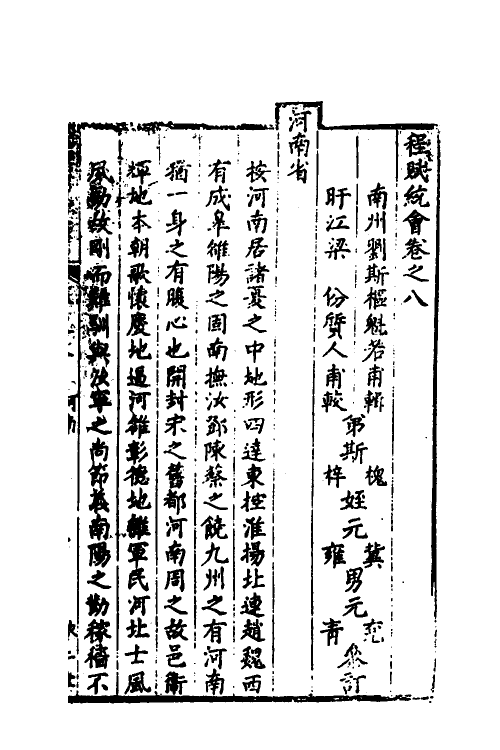 程賦統會卷之八
南州劉斯樞魁若甫輯
盱江梁　份質人甫較
弟斯槐
梓
姪元冀
雍
男元兗
青
叅訂
河南省
按河南居諸夏之中地形四達東控淮揚北連趙魏西
有成皋雒陽之固南撫汝鄧陳蔡之饒九州之有河南
猶一身之有腹心也開封宋之舊都河南周之故邑衛
輝地本朝歌懷慶地過河雒彰德地雜軍民河北士風
風勁故剛而難馴與汝寧之尚節義南陽之勤稼穡不